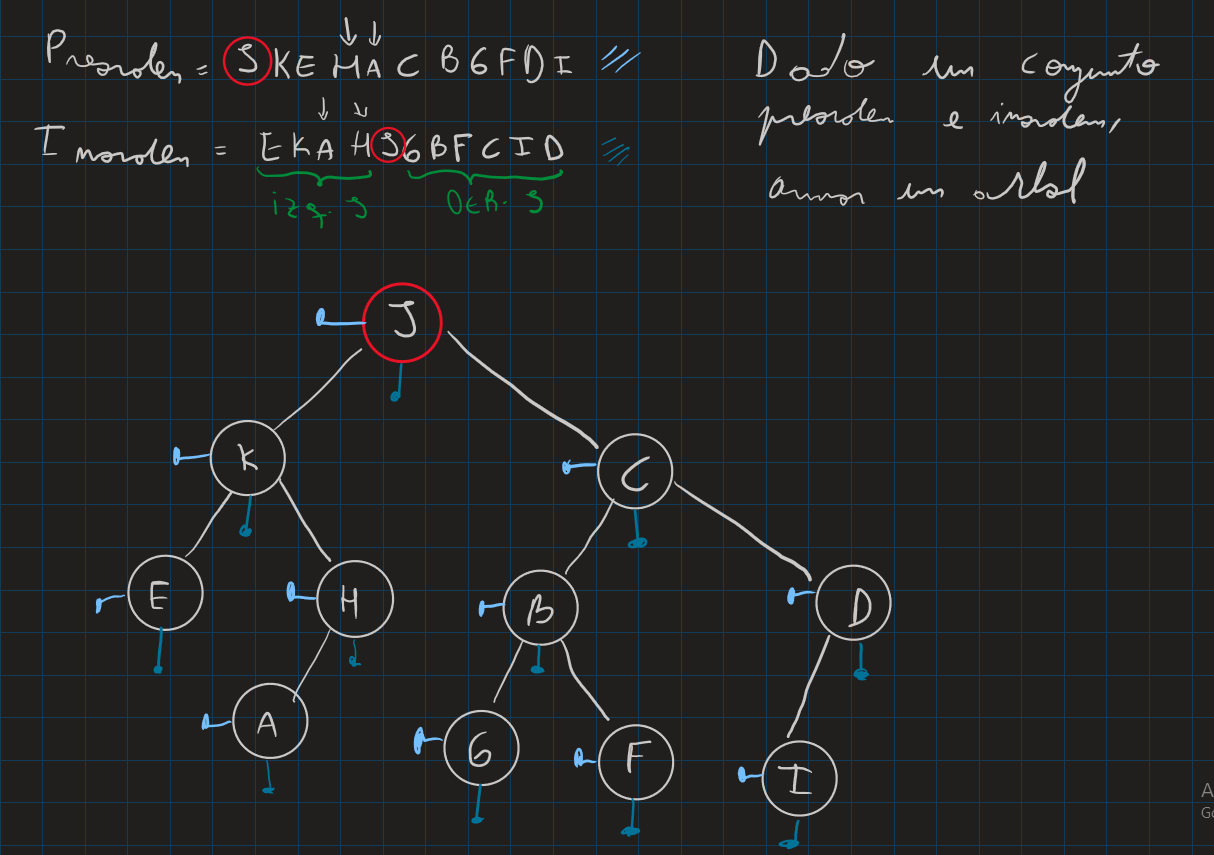 Preorden = J K E H A C B G F D I
Inorden = E K A H J G B F C I D
izq. J DER. J
Dado un conjunto
preorden e inorden,
armar un arbol
J
K C
E H B D
A G F I